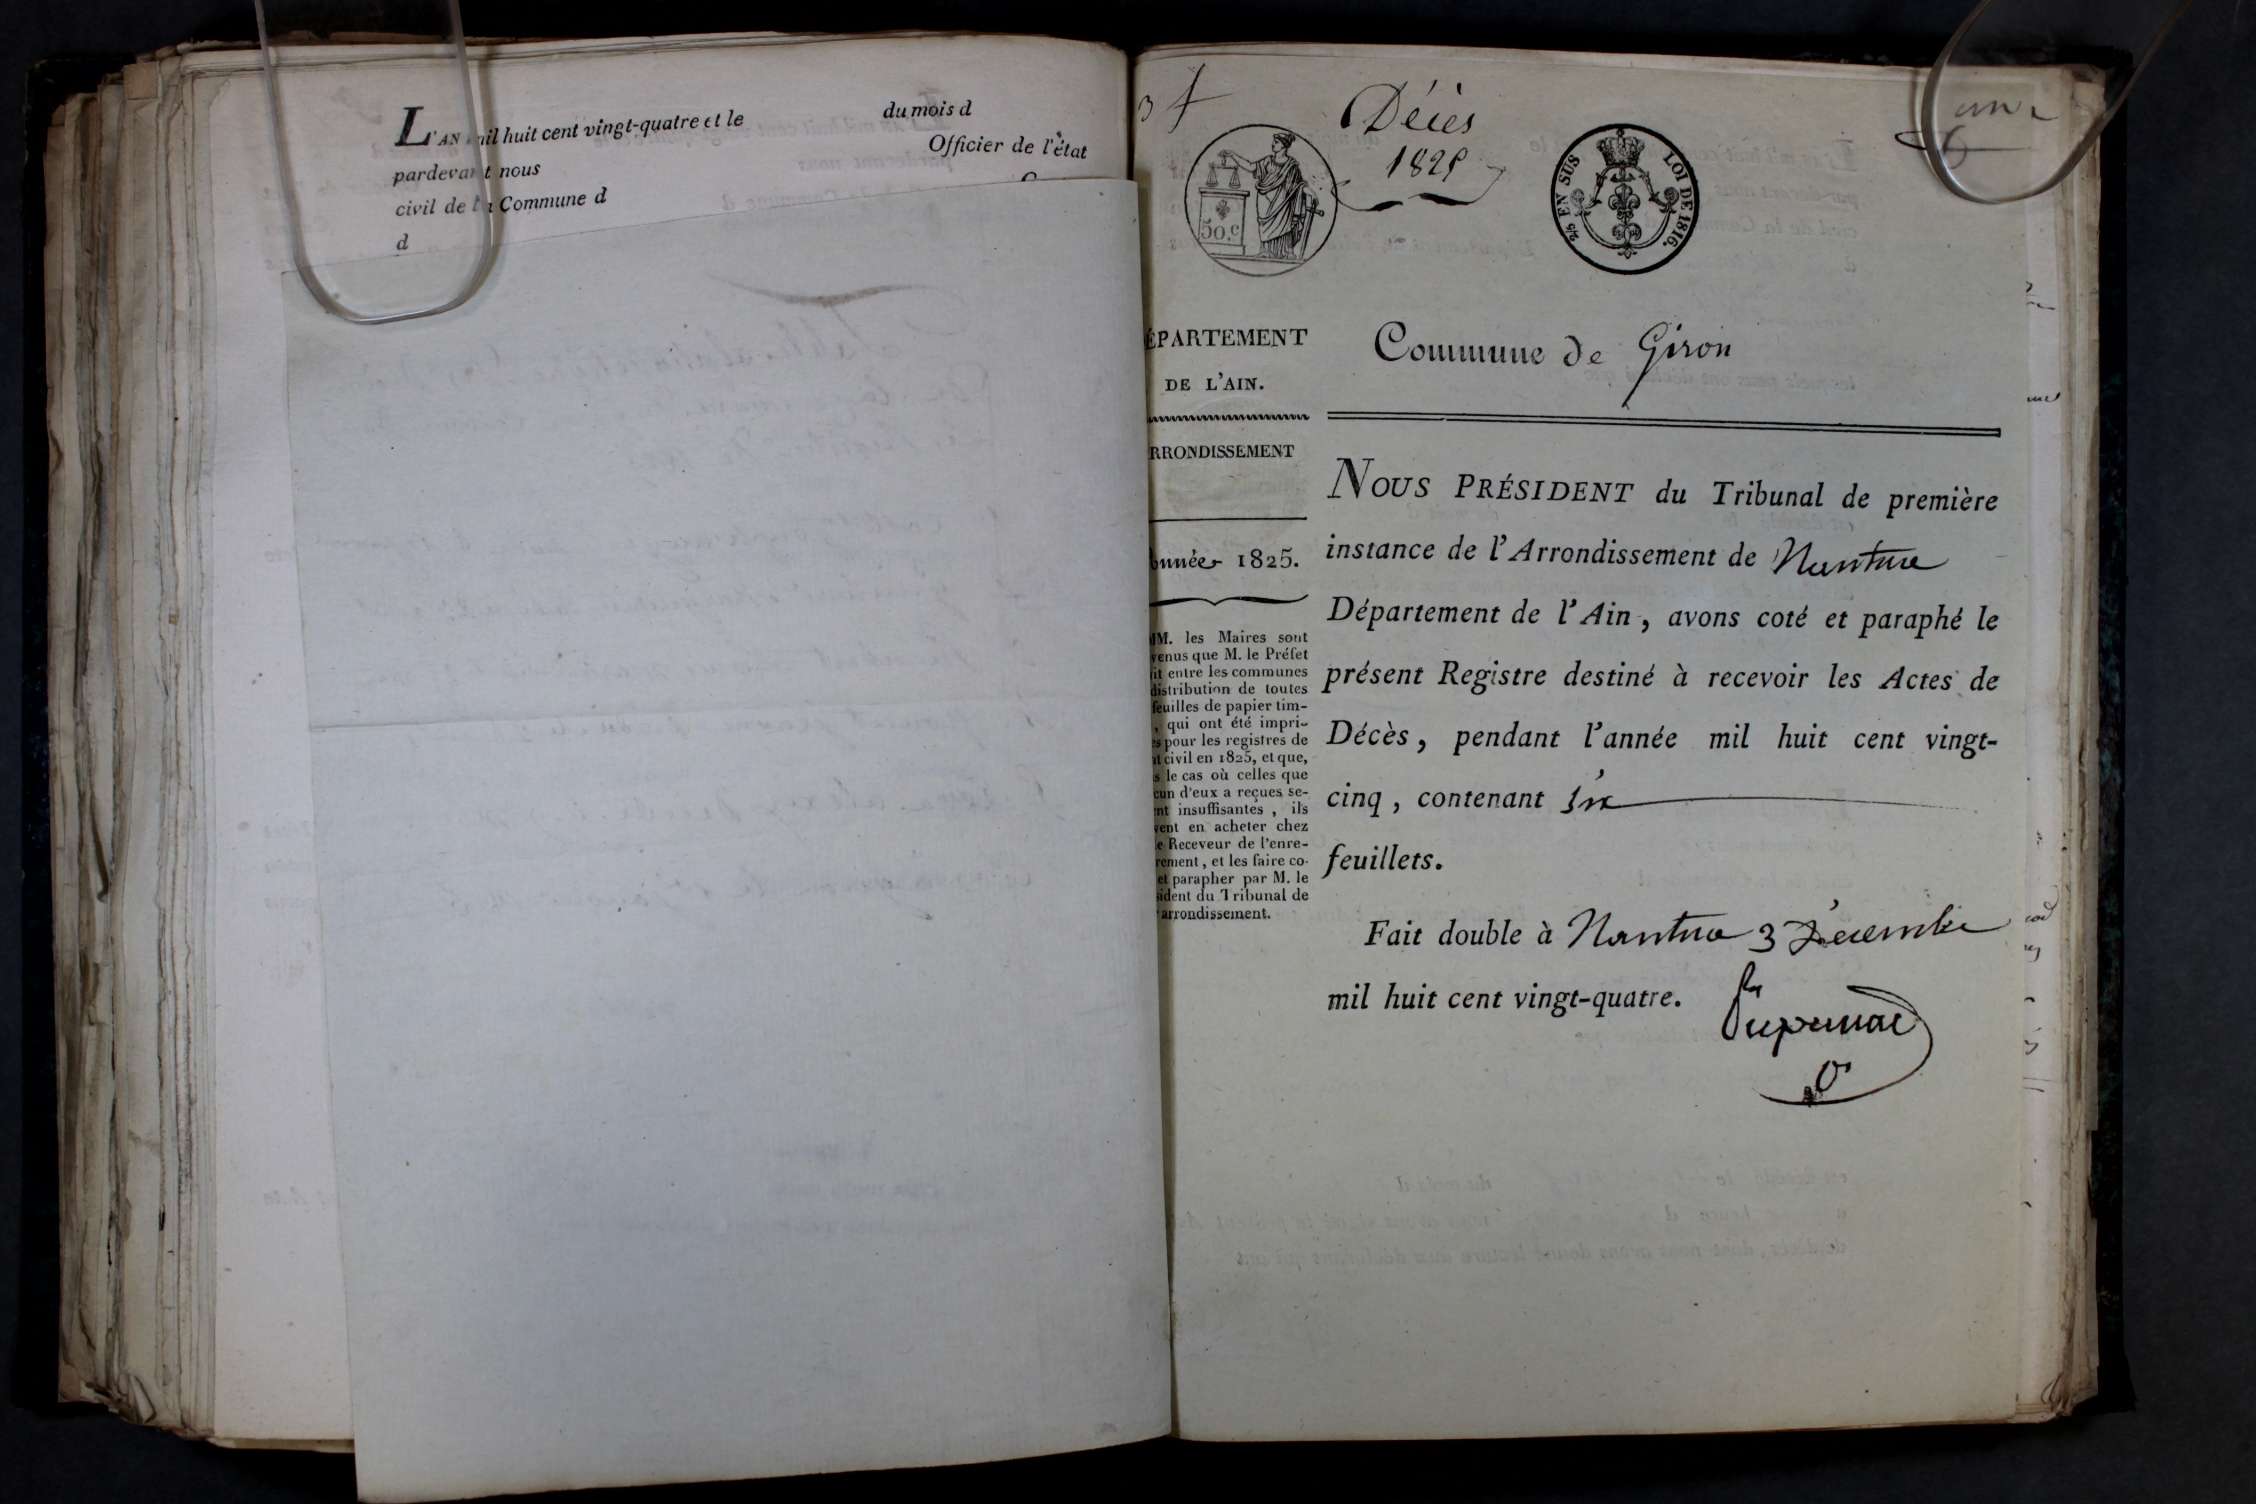 L'AN mil huit cent vingt-quatre et le du mois d
pardevant nous Officier de l'état
civil de la Commune d
d
3
Décès
1825
50.c
2/5 EN SUS LOI DE 1816.
une
6
ÉPARTEMENT
DE L'AIN.
Commune de Giron
RRONDISSEMENT
nnée 1825.
MM. les Maires sont
venus que M. le Préfet
it entre les communes
distribution de toutes
feuilles de papier tim-
, qui ont été impri-
es pour les registres de
at civil en 1825, et que,
s le cas où celles que
cun d'eux a reçues se-
nt insuffisantes, ils
vent en acheter chez
e Receveur de l'enre-
rement, et les faire co-
et parapher par M. le
sident du Tribunal de
arrondissement.
NOUS PRÉSIDENT du Tribunal de première
instance de l'Arrondissement de Nantua
Département de l'Ain, avons coté et paraphé le
présent Registre destiné à recevoir les Actes de
Décès, pendant l'année mil huit cent vingt-
cinq, contenant six
feuillets.
Fait double à Nantua 3 Décembre
mil huit cent vingt-quatre.